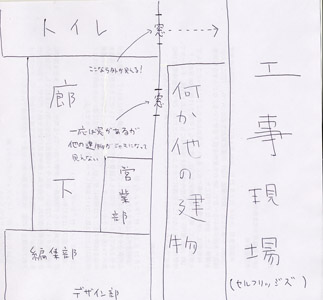 トイレ
窓
ここなら外が見える!
廊下
窓
一応は窓があるが
他の建物がじゃまになって
見えない
営業部
編集部
デザイン部
何か他の建物
工事現場
(セルフリッジズ)